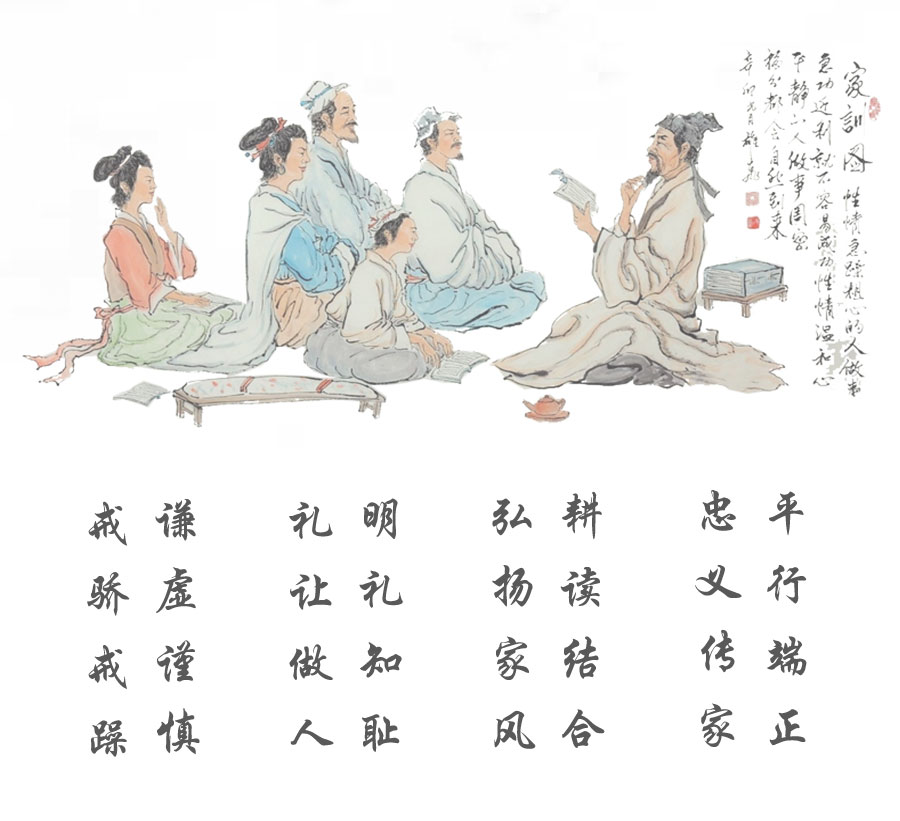 家训图 性情急躁粗心的人做事
急功近利就不容易成功性情温和心
平静人做事周密
都会自然到来
辛卯月
平行端正
忠义传家
耕读结合
弘扬家风
明礼知耻
礼让做人
谦虚谨慎
戒骄戒躁